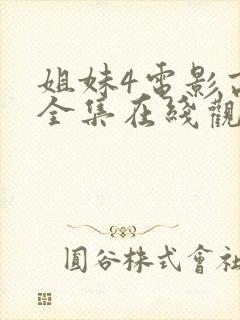 姐妹4電影
全集在綫觀
圓谷株式會社